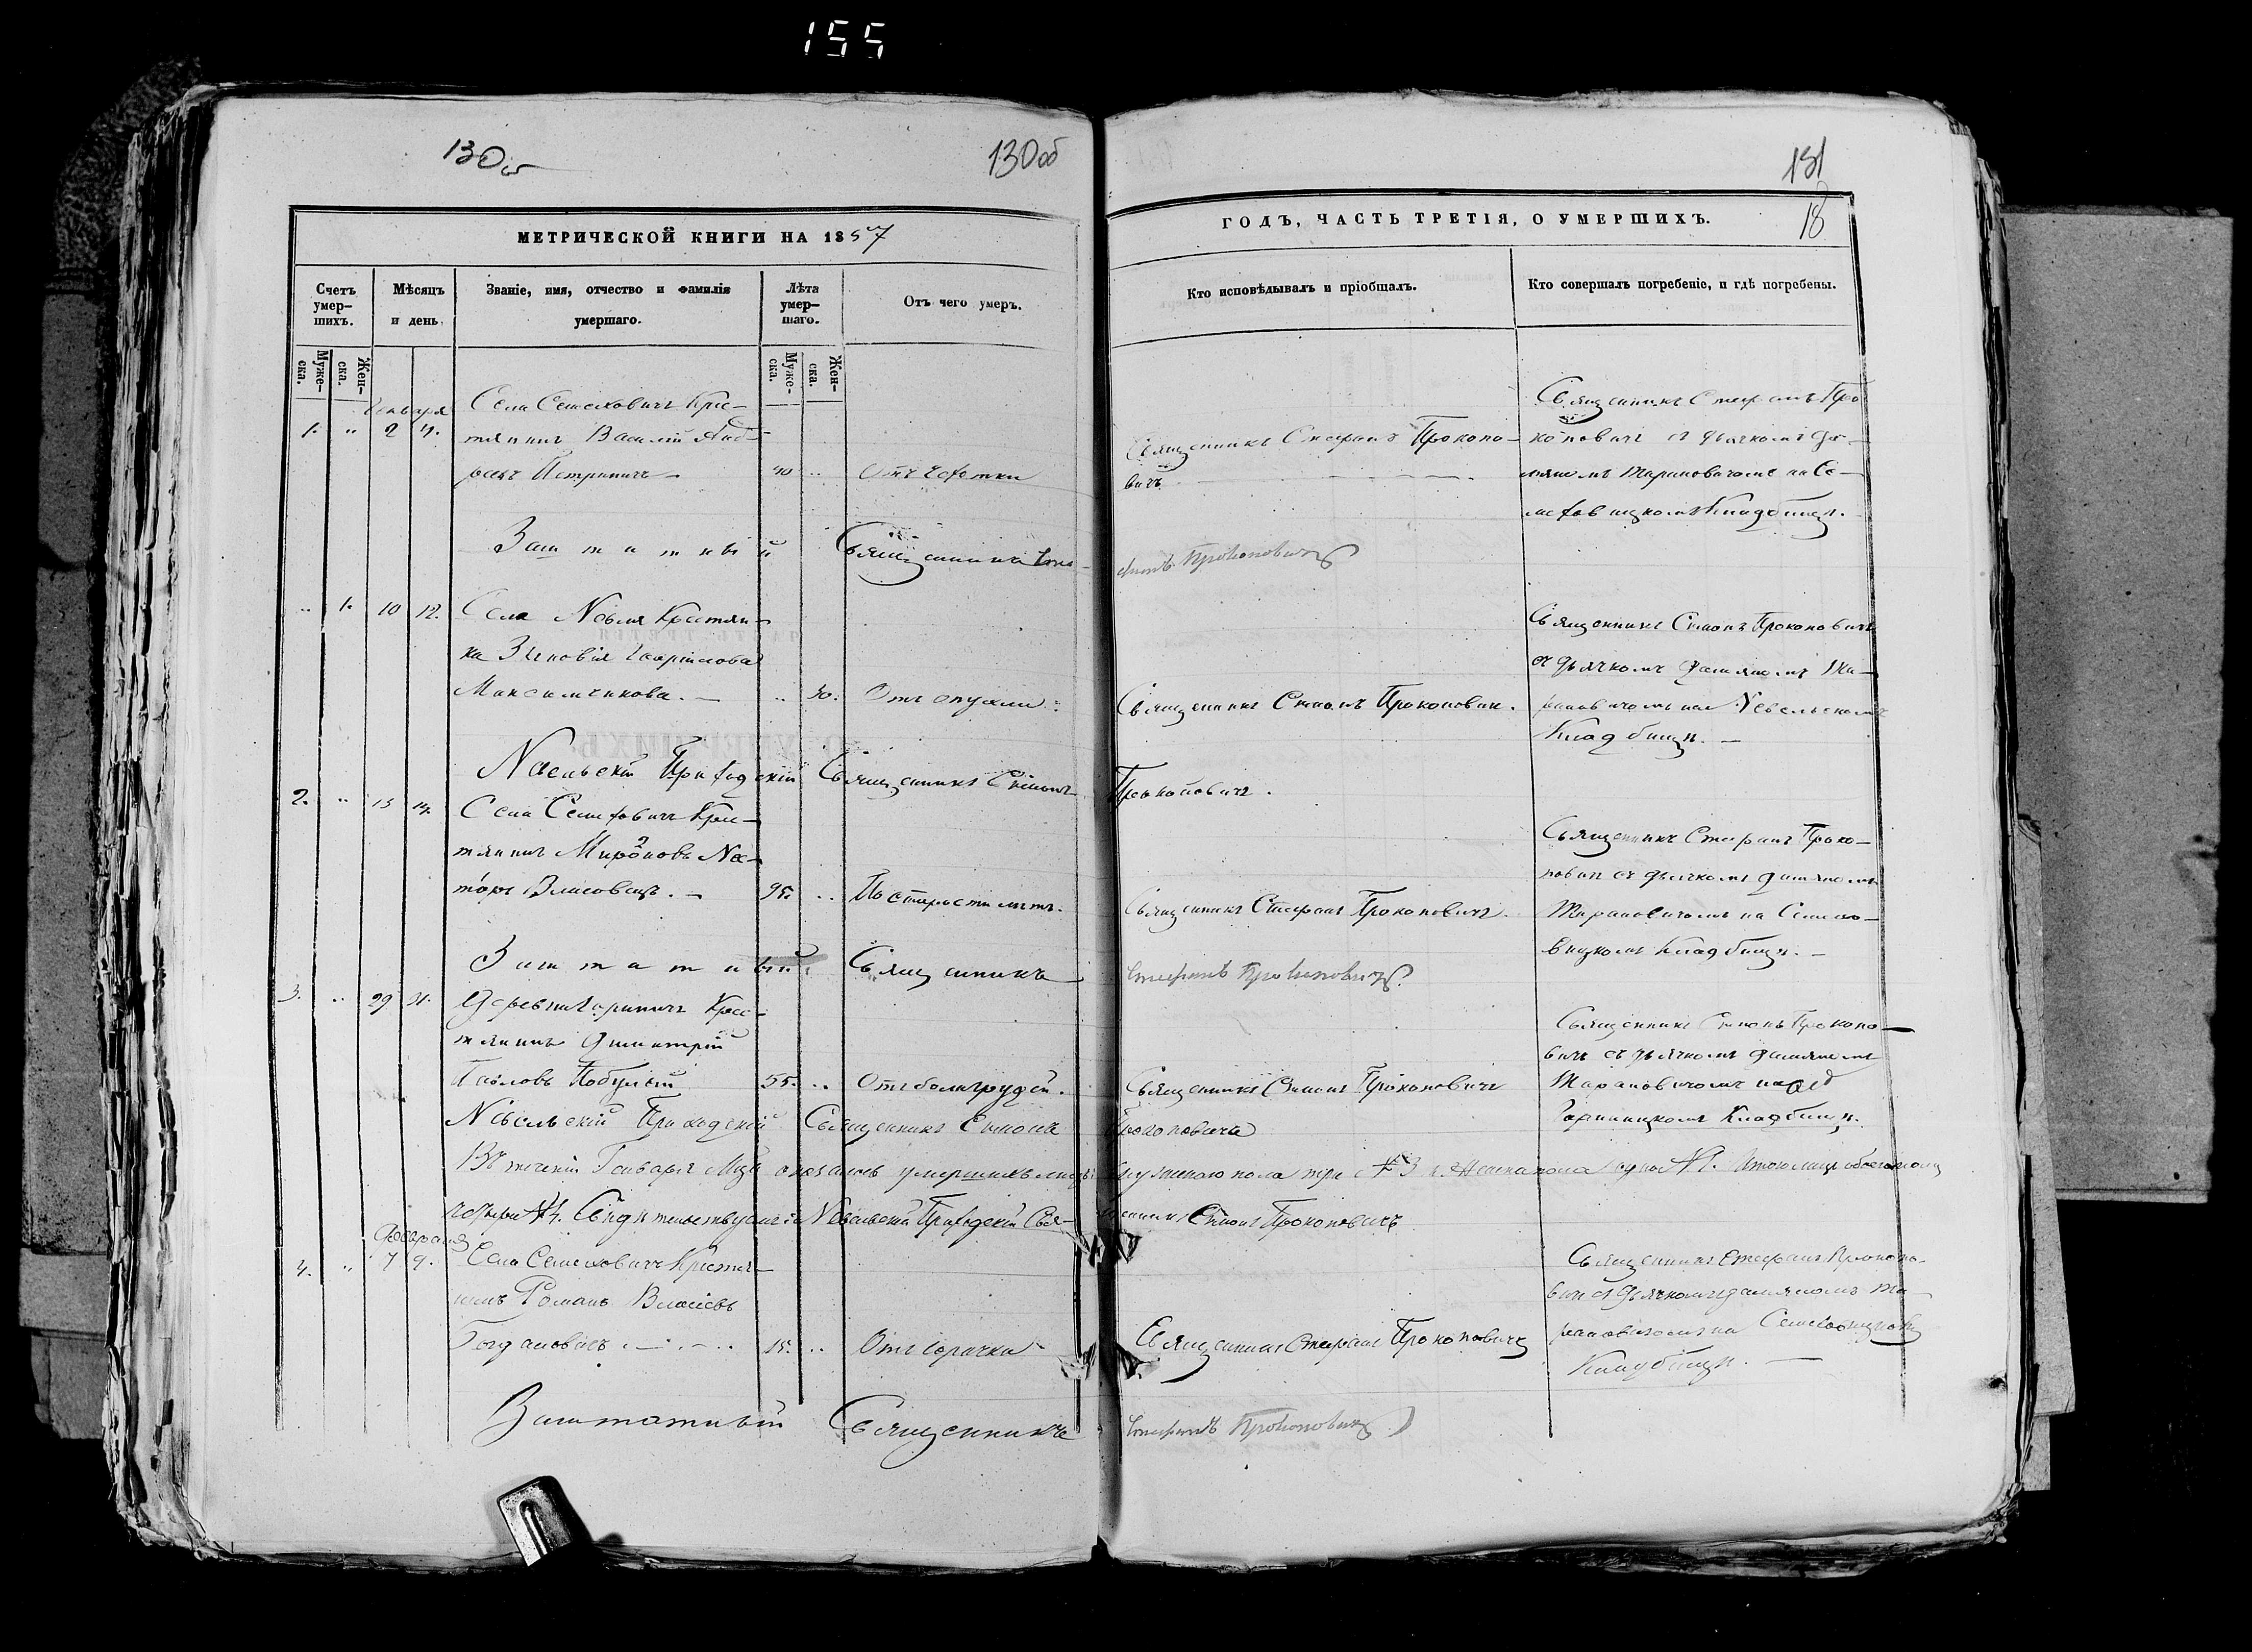 155
130об
130об
131
18
МЕТРИЧЕСКОЙ КНИГИ НА 1857
ГОДЪ, ЧАСТЬ ТРЕТІЯ, О УМЕРШИХЪ.
Счетъ умер-шихъ.
Мѣсяцъ и день.
Званіе, имя, отчество и фамилія умершаго.
Лѣта умер-шаго.
Отъ чего умеръ.
Кто исповѣдывалъ и пріобщалъ.
Кто совершалъ погребеніе, и гдѣ погребены.
Муже-ска.
Жен-ска.
Муже-ска.
Жен-ска.
Января
Села Семеховичъ Крес-
1. " 2 4. тянинъ Василій Анд-
40 " Отъ чехотки
Священникъ Стефанъ Прокопо-
вичъ
Священникъ Стефанъ Про
коповичъ съ дьячкомъ Да-
міяномъ Тарановичомъ на Се-
меховицкомъ Кладбищѣ.
Заштатный Священникъ Сте-
фанъ Прокоповичъ
" 1. 10 12. Села Невля Крестян-
ка Зиновія Гаврилова
Максимчикова. " 40. Отъ опухли.
Священникъ Симонъ Прокопович.
Священникъ Симонъ Прокоповичъ
съ дьячкомъ Даміяномъ Та-
рановичомъ на Невельскомъ
Кладбищѣ.
Невельскій Приходскій Священникъ Симонъ
Прокоповичъ.
2. " 13 14. Села Семеховичъ Крес-
тянинъ Нес-
торъ Власовецъ. 95. " Въ старости лѣтъ.
Священникъ Стефанъ Прокоповичъ.
Священникъ Стефанъ Проко-
повичъ съ дьячкомъ Даміяномъ
Тарановичомъ на Семехо-
вицкомъ Кладбищѣ.
Заштатный Священникъ
Стефанъ Прокоповичъ
3. " 29 31. Деревни Гориничъ Крес-
тянинъ Димитрій
55. " Отъ боли грудей.
Священникъ Симонъ Прокоповичъ
Священникъ Симонъ Прокопо-
вичъ съ дьячкомъ Даміяномъ
Тарановичомъ на
Гориницкомъ Кладбищѣ.
Невельскій Приходскій Священникъ Симонъ
Прокоповичъ
Въ теченіи Генваря Мца оказалось умершихъ
мужеского пола три №3 и Женска пола одна №1. Итого лицъ обоего полу
четыри №4. Свидѣтельствуетъ Невельскій Приходскій Свя-
щенникъ Симонъ Прокоповичъ
Февраля
4. " 7 9. Села Семеховичъ Крестя-
нинъ Романъ Власіевъ
Богдановичъ. 15. " Отъ горячки
Священникъ Стефанъ Прокоповичъ
Священникъ Стефанъ Прокопо-
вичъ съ дьячкомъ Даміяномъ Та-
рановичомъ на Семеховицкомъ
Кладбищѣ.
Заштатный Священникъ
Стефанъ Прокоповичъ